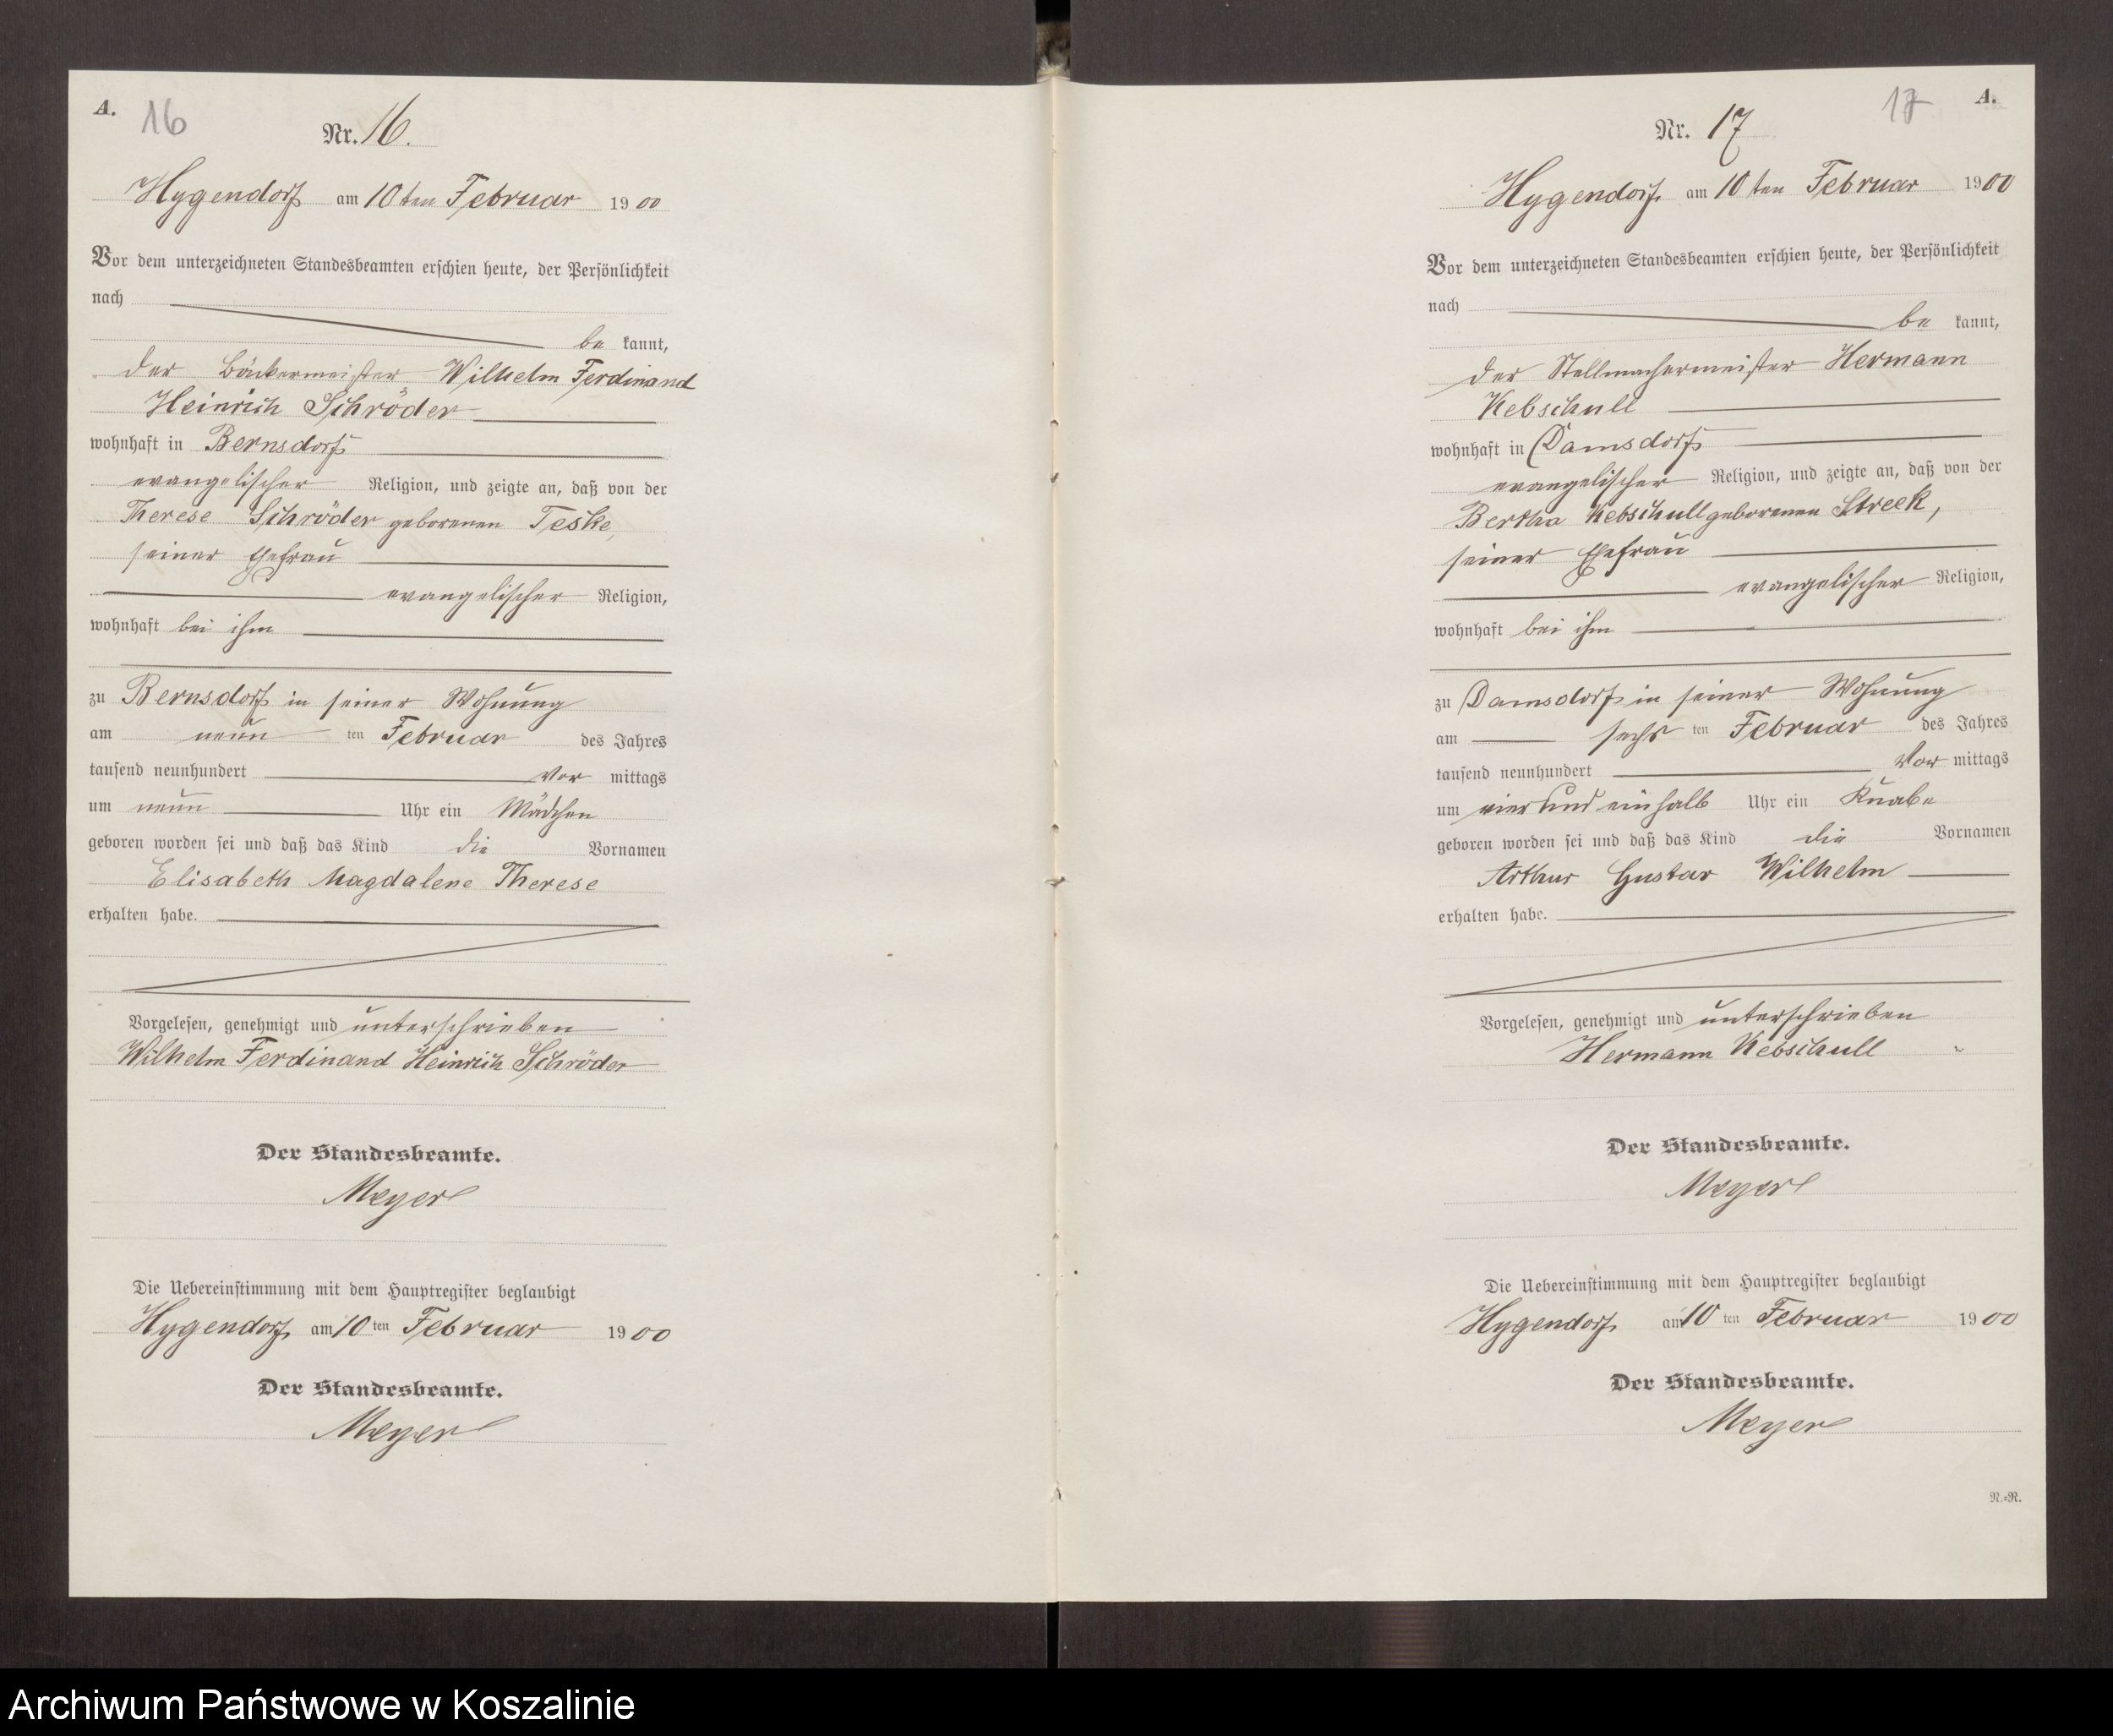 A. 16
Nr. 16.
Hygendorf am 10ten Februar 1900
Vor dem unterzeichneten Standesbeamten erschien heute, der Persönlichkeit
nach
be kannt,
der Bäckermeister Wilhelm Ferdinand
Heinrich Schröder
wohnhaft in Bernsdorf
evangelischer Religion, und zeigte an, daß von der
Therese Schröder geborenen Teske,
seiner Ehefrau
evangelischer Religion,
wohnhaft bei ihm
zu Bernsdorf in seiner Wohnung
am neun ten Februar des Jahres
tausend neunhundert Vor mittags
um neun Uhr ein Mädchen
geboren worden sei und daß das Kind die Vornamen
Elisabeth Magdalene Therese
erhalten habe.
Vorgelesen, genehmigt und unterschrieben
Wilhelm Ferdinand Heinrich Schröder
Der Standesbeamte.
Meyer
Die Uebereinstimmung mit dem Hauptregister beglaubigt
Hygendorf am 10 ten Februar 1900
Der Standesbeamte.
Meyer
17 A.
Nr. 17
Hygendorf am 10ten Februar 1900
Vor dem unterzeichneten Standesbeamten erschien heute, der Persönlichkeit
nach
be kannt,
der Stellmachermeister Hermann
Kebschull
wohnhaft in Damsdorf
evangelischer Religion, und zeigte an, daß von der
Bertha Kebschull geborenen Streek,
seiner Ehefrau
evangelischer Religion,
wohnhaft bei ihm
zu Damsdorf in seiner Wohnung
am sechs ten Februar des Jahres
tausend neunhundert Vor mittags
um vier und einhalb Uhr ein Knabe
geboren worden sei und daß das Kind die Vornamen
Arthur Gustav Wilhelm
erhalten habe.
Vorgelesen, genehmigt und unterschrieben
Hermann Kebschull
Der Standesbeamte.
Meyer
Die Uebereinstimmung mit dem Hauptregister beglaubigt
Hygendorf am 10 ten Februar 1900
Der Standesbeamte.
Meyer
N.-R.
Archiwum Państwowe w Koszalinie